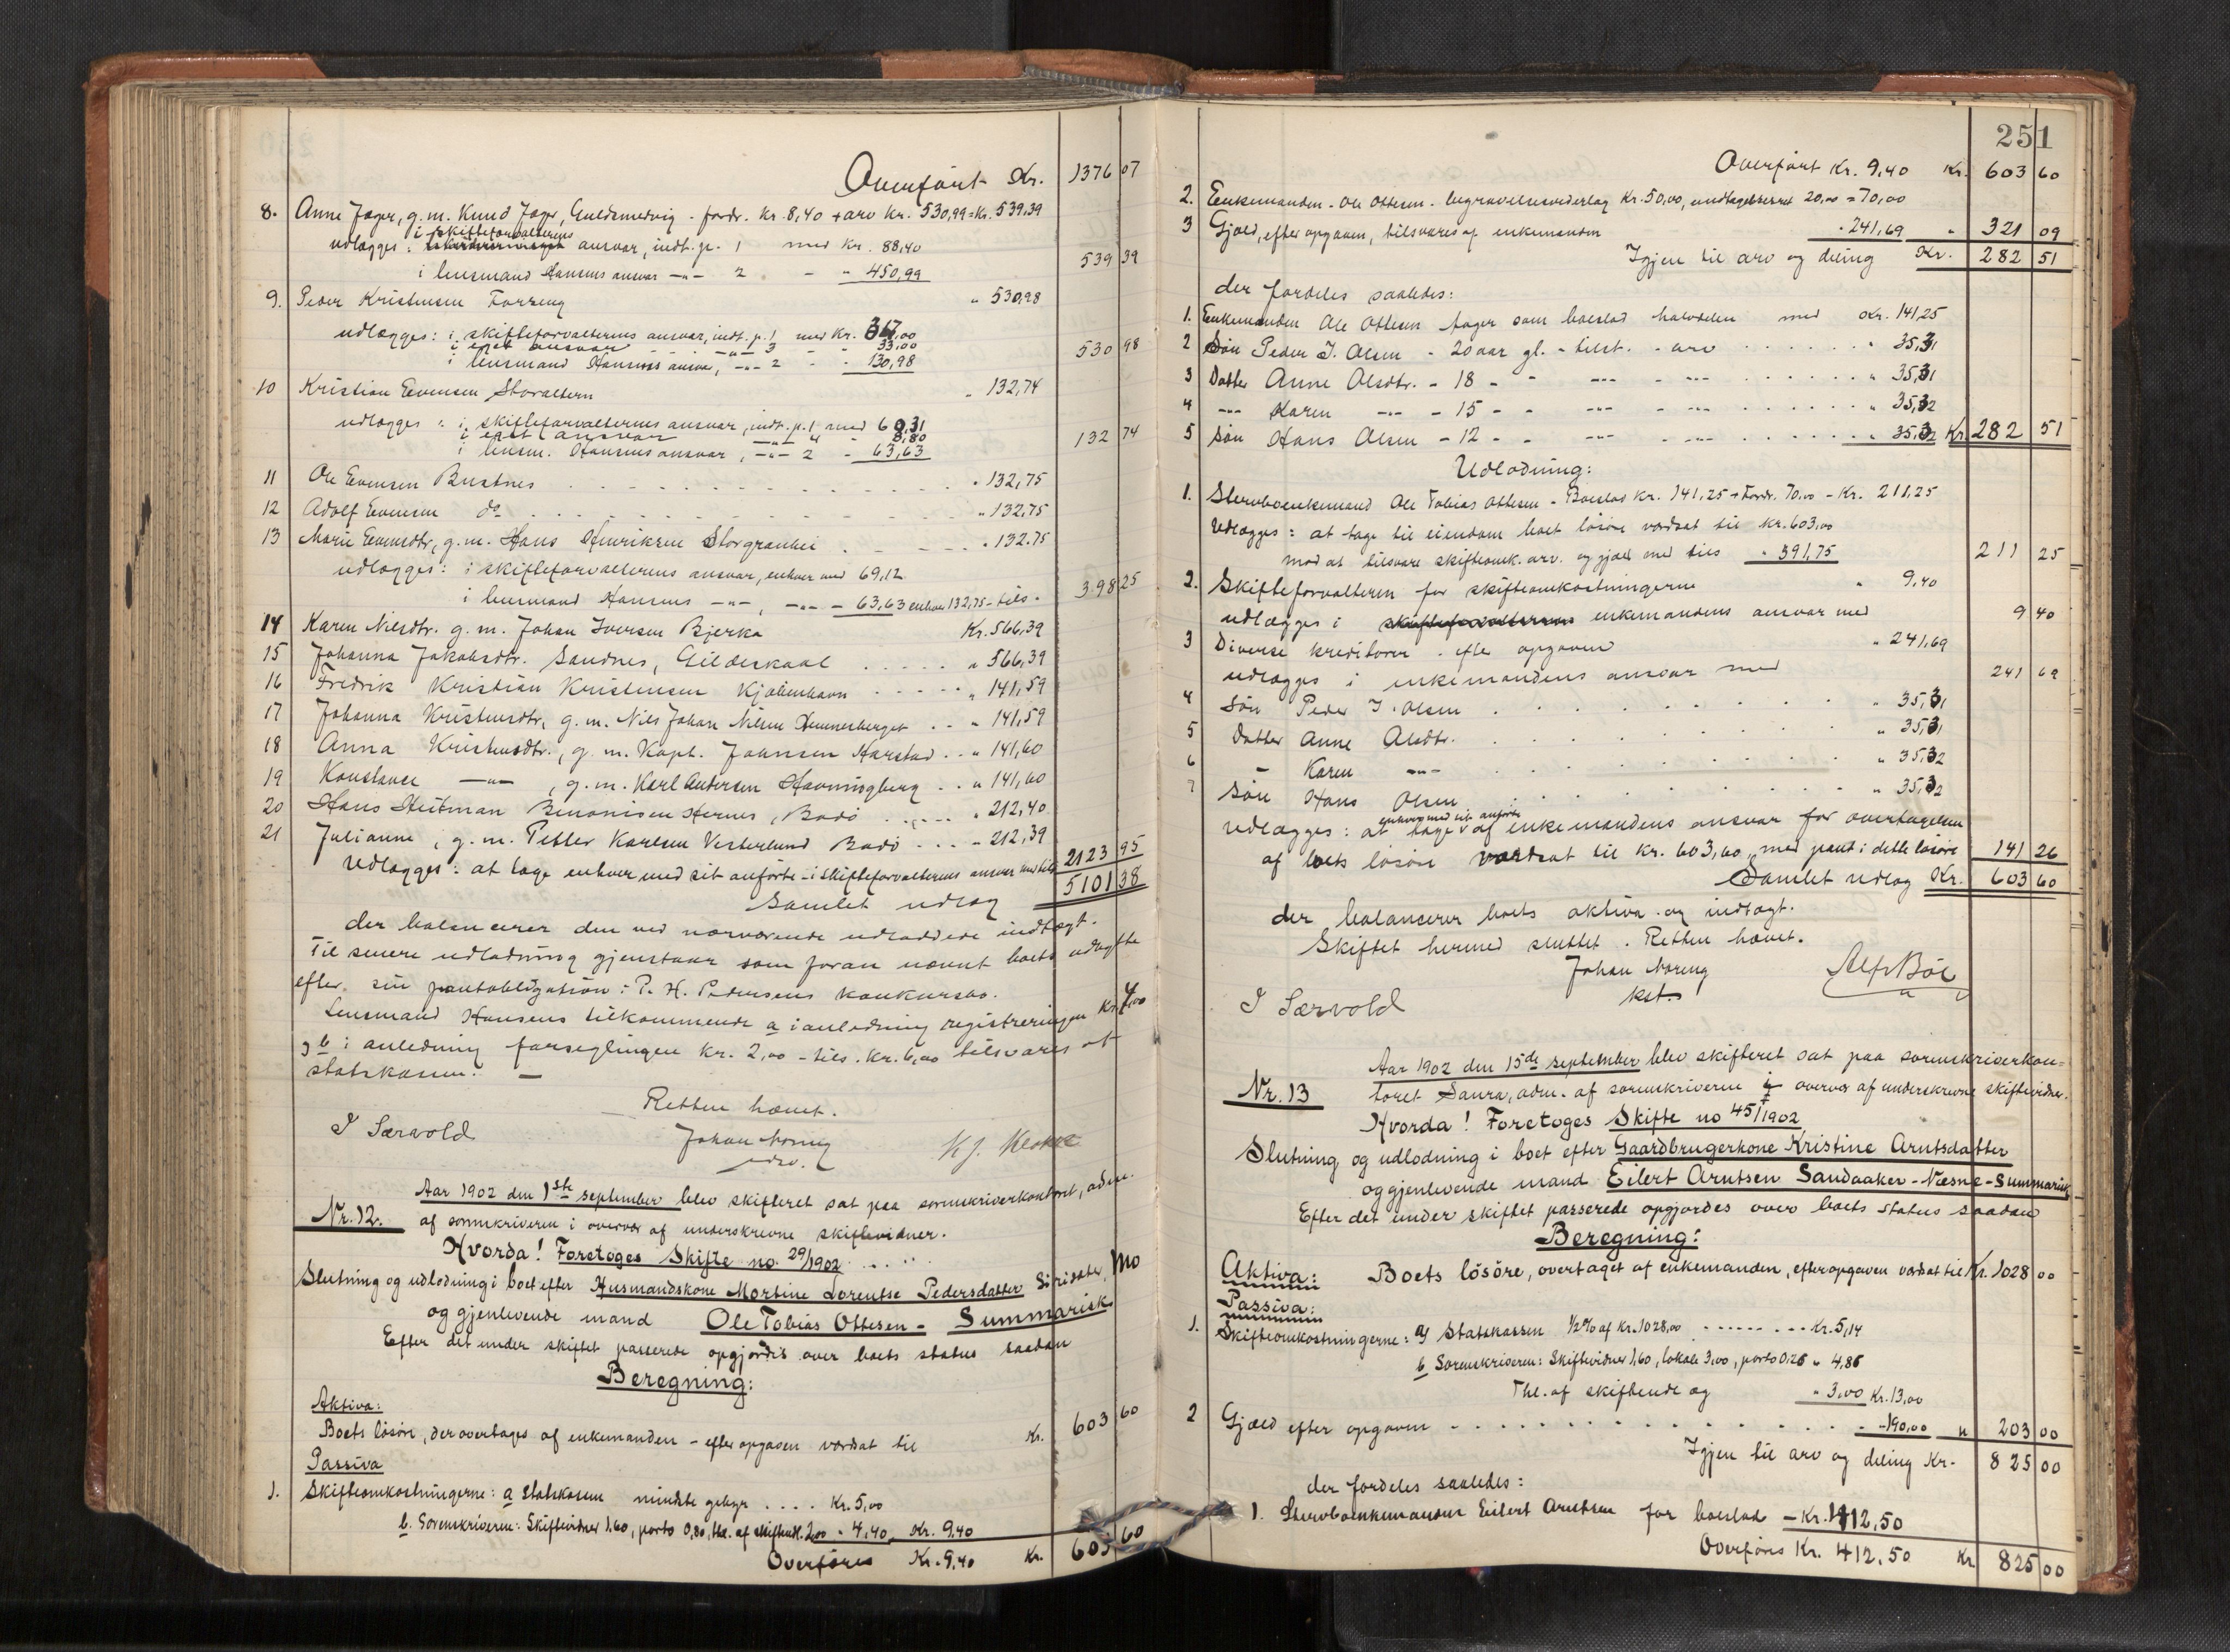 Overført Kr. 1376 07
8. Anne Jager, g. m. Knud Jager, Guldsmedvig - fordr. kr. 8,40 + arv kr. 530,99 = Kr. 539,39
i skifteforvalterens
udlægges: ansvar, indt. p. 1 med kr. 88,40
i lensmand Hansens ansvar -"- 2 - " 450,99 539 39
9. Peder Kristensen Forreng " 530,98
udlægges: i skifteforvalterens ansvar, indt. p. 1 med Kr. 367,00
i eget ansvar -"- 3 - - 33,00
i lensmand Hansens ansvar, -"- 2 - - 130,98 530 98
10 Kristian Evensen Storaltern " 132,74
udlægges: i skifteforvalterens ansvar, indt. p. 1 med 60,31
i eget ansvar -"- 4 - 8,80
i lensm. Hansens ansvar, -"- 2 - 63,63 132 74
11 Ole Evensen Bustnes " 132,75
12 Adolf Evensen do " 132,75
13 Marie Evensdtr, g. m. Hans Henriksen Storgranhei " 132.75
udlægges: i skifteforvalterens ansvar, enhver med 69,12
i lensmand Hansens -"-, -"- - 63,63 enhver 132,75 - tils. 398 25
14 Karen Nilsdtr. g. m. Johan Iversen Bjerka Kr. 566,39
15 Johanna Jakobsdtr. Sandnes, Gildeskaal " 566,39
16 Fredrik Kristian Kristensen Kjøbenhavn " 141,59
17 Johanna Kristensdtr, g. m. Nils Johan Nilsen Hemnesberget " 141,59
18 Anna Kristensdtr., g. m. Kapt. Johnsen Harstad " 141,60
19 Konstance -"-, g. m. Karl Antersen Havningberg " 141,60
20 Hans Heitman Benonisen Hernes, Bodö " 212,40
21 Julianne, g. m. Petter Karlsen Vesterlund Bodö - 212,39
Udlægges: at tage enhver med sit anførte - i skifteforvalterens ansvar med tils 2123 95
Samlet udlæg 5101 38
der balancerer den ved nærværende udloddede indtægt.
Til senere udlodning gjenstaar som foran nævnt boets udbytte
efter sin pantobligation i P. H. Pedersens konkursbo.
Lensmand Hansens tilkommende a i anledning registreringen Kr. 4,00
og b i anledning forseglingen kr. 2,00 - tils. kr. 6,00 tilsvares af
statskassen. —
Retten hævet.
I Særvold Johan Moreng
Nr. 12. Aar 1902 den 1ste september blev skifteret sat paa sorenskriverkontoret, adm.
af sorenskriveren i overvær af underskrevne skiftevidner.
Hvorda! Foretoges Skifte no. 29/1902
Slutning og udlodning i boet efter Husmandskone Mortine Lorentse Pedersdatter Mo
og gjenlevende mand Ole Tobias Ottesen - Summarisk
Efter det under skiftet passerede opgjordes over boets status saadan
Beregning:
Aktiva:
Boets løsøre, der overtages af enkemanden - efter opgaven værdsat til Kr. 603 60
Passiva
1. Skifteomkostningerne: a Statskassen mindste gebyr Kr. 5,00
b. Sorenskriveren: Skiftevidner 1,60, porto 0,80, thl. af skiftendl. 2,00 - 4,40 Kr. 9,40
Overføres Kr. 9,40 Kr. 603 60
251
Overført Kr. 9,40 Kr. 603 60
2. Enkemanden - Ole Ottesen - begravelsesvederlag Kr. 50,00, undtagelsesret 20,00 = 70,00
3 Gjæld, efter opgaven, tilsvares af enkemanden " 241,69 " 321 09
Igjen til arv og deling Kr. 282 51
der fordeles saaledes:
1. Enkemanden Ole Ottesen tager som boeslod halvdelen med Kr. 141,25
2 Søn Peder J. Olsen - 20 aar gl. - tilst. - arv " 35,31
3 Datter Anne Olsdtr. - 18 - - -"- - -"- " 35,31
4 -"- Karen -"- - 15 - - -"- - -"- " 35,32
5 søn Hans Olsen - 12 - - -"- - -"- " 35,32 Kr. 282 51
Udlodning:
1. Stervboenkemand Ole Tobias Ottesen - Boeslod kr. 141,25 + Fordr. 70,00 - Kr. 211,25
Udlægges: at tage til eiendom boet løsøre værdsat til kr. 603,00
mod at tilsvare skifteomk. arv. og gjæld med tils " 391,75 211 25
2. Skifteforvalteren for skifteomkostningerne " 9,40
udlægges i skifteforvalterens enkemandens ansvar med 9 40
3 Diverse kreditorer - efter opgaven " 241,69
udlægges i enkemandens ansvar med 241 69
4 Søn Peder J. Olsen " 35,31
5 Datter Anne Olsdtr. " 35,31
6 - Karen -"- " 35,32
7 søn Hans Olsen " 35,32
enhver med sit anførte
Udlægges: at tage af enkemandens ansvar for overtagelsen
af boets løsøre værdsat til Kr. 603,60, med pant i dette løsøre 141 26
Samlet udlæg Kr. 603 60
der balancerer boets aktiva og indtægt.
Skiftet hermed sluttet. Retten hævet.
I Særvold Johan Moreng Alf Bøe
kst.
Nr. 13 Aar 1902 den 15de september blev skifteret sat paa sorenskriverkon=
toret Saura, adm. af sorenskriveren i overvær af underskrevne skiftevidner.
Hvorda! Foretoges Skifte no 45/1902
Slutning og udlodning i boet efter Gaardbrugerkone Kristine Arntsdatter
og gjenlevende mand Eilert Arntsen Sandaaker - Næsne - Summarisk
Efter det under skiftet passerede opgjordes over boets status saadan
Beregning:
Aktiva: Boets løsøre, overtaget af enkemanden, efter opgaven værdsat til Kr. 1028 00
Passiva:
1. Skifteomkostningerne: a/ Statskassen 1/2 % af Kr. 1028,00 Kr. 5,14
b Sorenskriveren: Skiftevidner 1,60, lokale 3,00, porto 0,26 " 4,86
Thl. af skiftende og " 3,00 Kr. 13,00
2 Gjæld efter opgaven - 190,00 " 203 00
Igjen til arv og deling Kr. 825 00
der fordeles saaledes:
1. Stervboenkemanden Eilert Arntsen for boeslod - Kr. 412,50
Overføres Kr. 412,50 Kr. 825 00